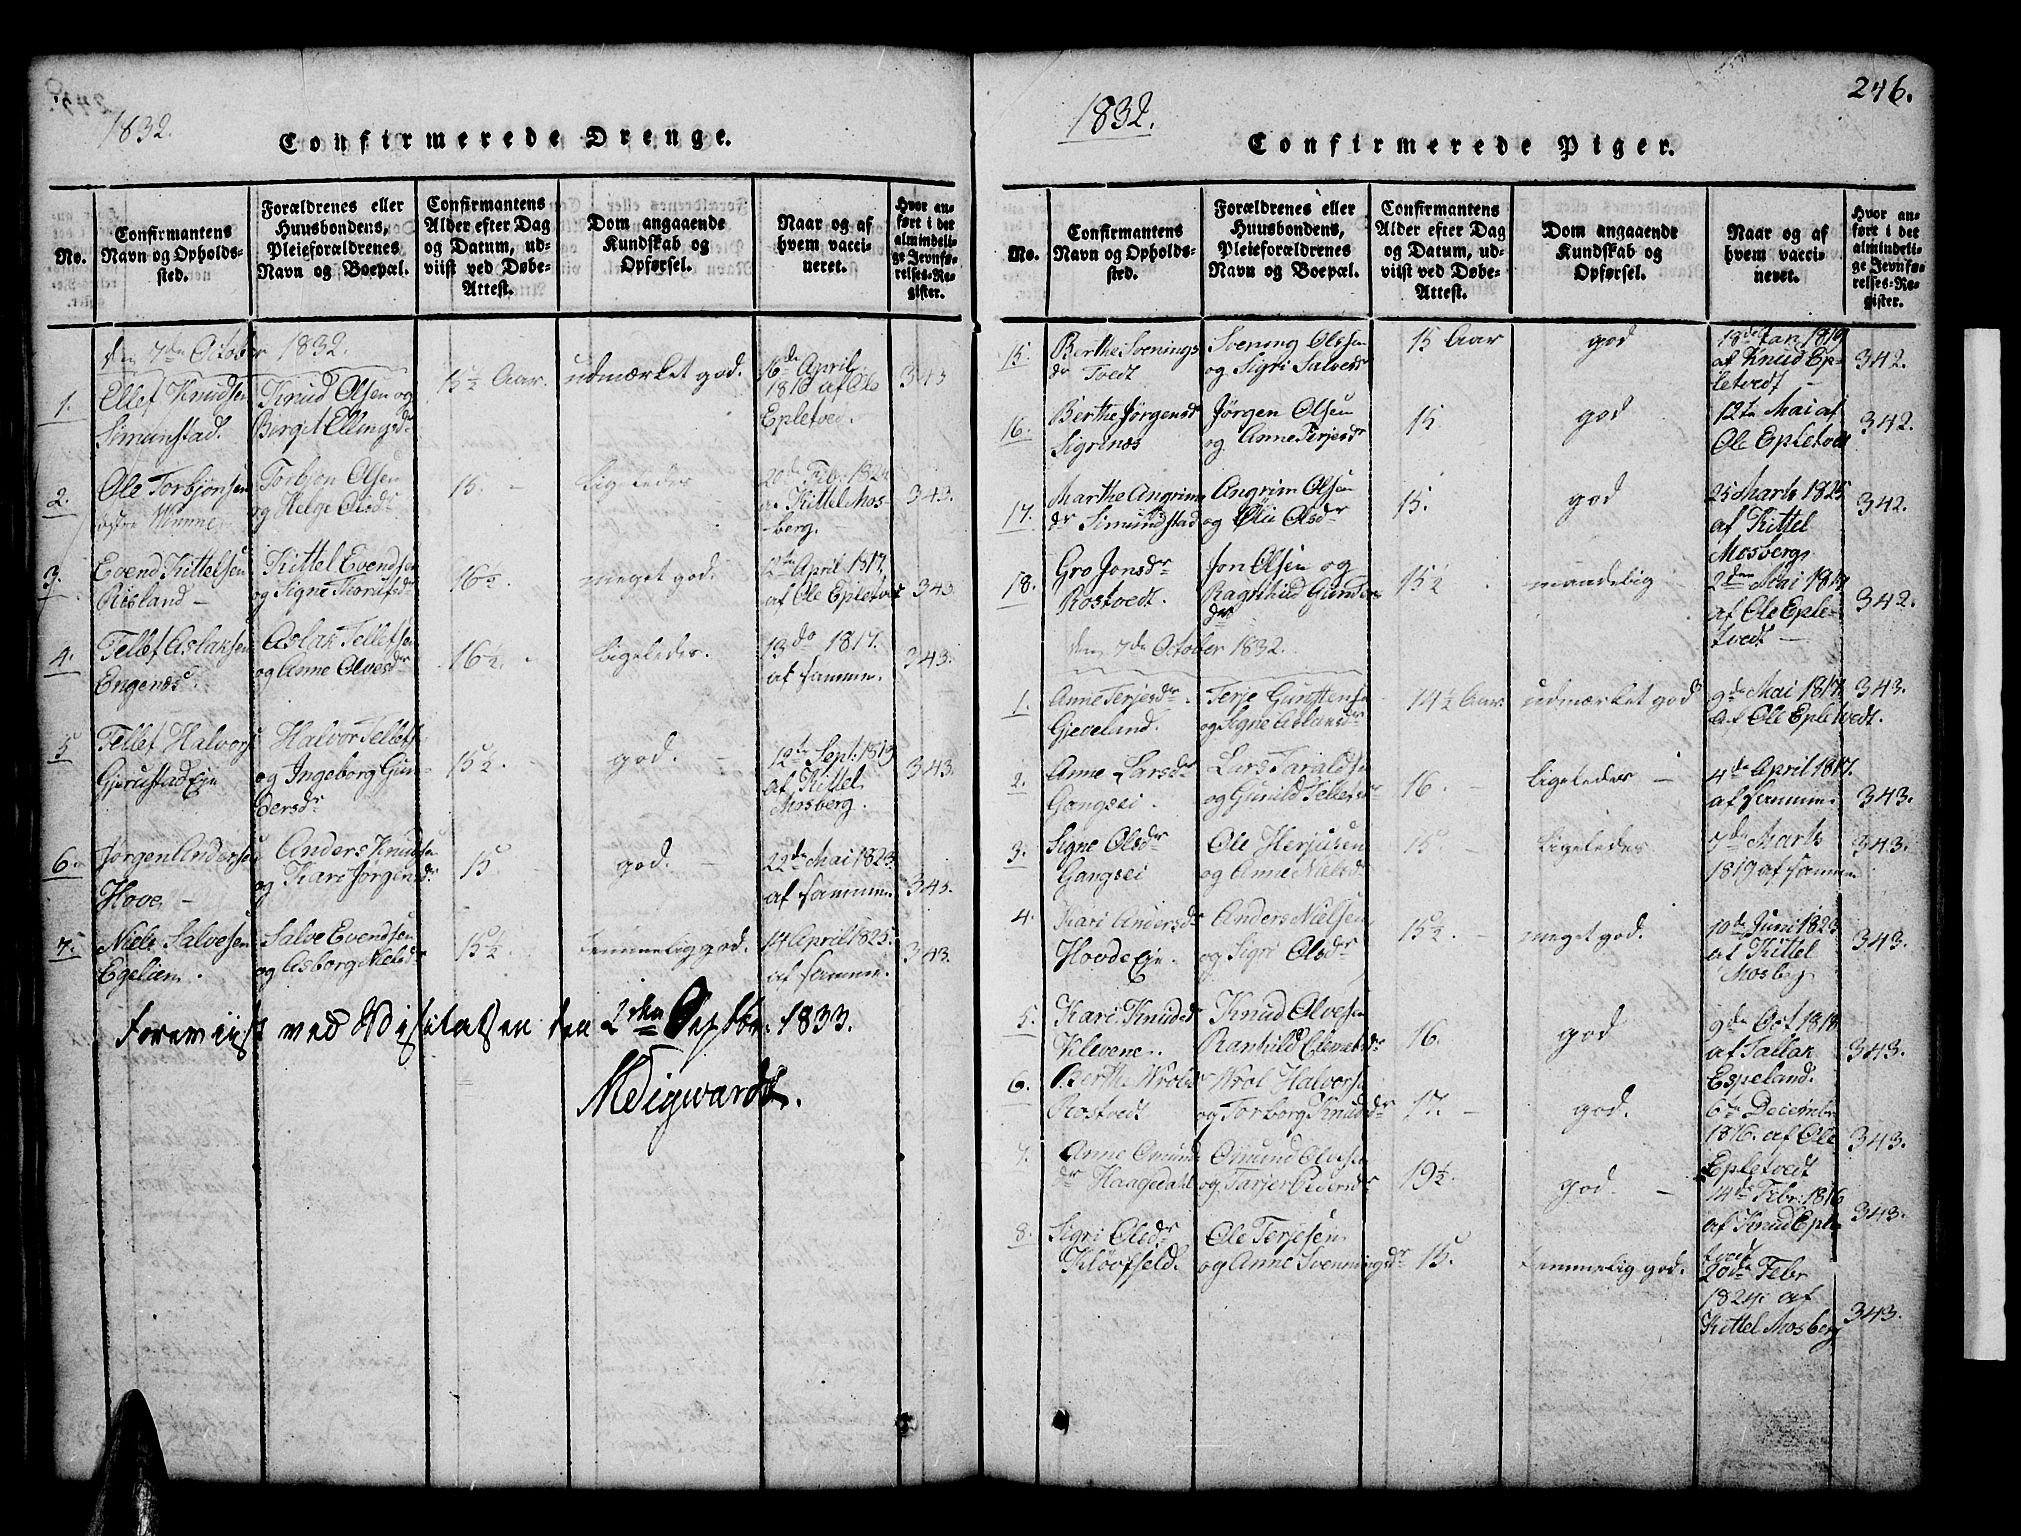 1832.
Confirmerede Drenge.
No.
Confirmantens
Navn og Opholds-
sted.
Forældrenes eller
Huusbondens,
Pleieforældrenes
Navn og Boepæl.
Confirmantens
Alder efter Dag
og Datum, ud-
viist ved Døbe-
Attest.
Dom angaaende
Kundskab og
Opførsel.
Naar og af
hvem vacci-
neret.
Hvor an-
ført i det
almindeli-
ge Jevnfø-
relses-Re-
gister.
den 7de October 1832.
1.
Ellef Knudsen
Simunstad.
Knud Olsen og
Birget Ellingsdr
15½ Aar.
udmærket god.
16de April
1816 af Ole
Epletved.
343
2.
Ole Torbjönsen
østre Minne
Torbjøn Olsen
og Helge Olsdr
15.
ligeledes
20de Febr. 1824
af Kittel Mos-
berg.
343.
3.
Evend Kittelsen
Risland -
Kittel Evendsen
og Signe Thorufsdr
16½.
meget god.
12te April 1817.
af Ole Epletvet
343
4.
Tellef Aslaksen
Engenæs.
Aslak Tellefsen
og Anne Olvesdr
16½.
ligeledes.
13do 1817.
af samme.
343.
5
Tellef Halvors
Gjerustad Eje
Halvor Tellefs
og Ingeborg Gun-
dersdr
15½.
god.
12te Sept. 1819
af Kittel
Mosberg.
343.
6.
Jørgen Andersen
Hove -
Anders Knudsen
og Kari Jørgensdr
15
god. -
22de Mai 1823.
af samme
343.
7.
Niels Salvesen
Egelien.
Salve Evendsen
og Asborg Nielsdr
15½.
temmelig god.
14 April 1825.
af samme.
343.
Foreviist ved Visitatsen den 2den Septbr. 1833.
246.
1832.
Confirmerede Piger.
No.
Confirmantens
Navn og Opholds-
sted.
Forældrenes eller
Huusbondens,
Pleieforældrenes
Navn og Boepæl.
Confirmantens
Alder efter Dag
og Datum, ud-
viist ved Døbe-
Attest.
Dom angaaende
Kundskab og
Opførsel.
Naar og af
hvem vacci-
neret.
Hvor an-
ført i det
almindeli-
ge Jevnfø-
relses-Re-
gister.
15.
Berthe Svenings
dr Tvedt
Svening Olssen
og Sigri Salvesdr
15 Aar
god
18de Jan. 1819
af Knud Ep-
letvedt -
342.
16.
Berthe Jørgensdr
Sigrinæs
Jørgen Olsen
og Anne Terjesdr
15
god
12te Mai af
Ole Epletved
342.
17.
Marthe Angrims
dr Simundstad
Angrim Olsen
og Olsdr
15.
god
25 Marts 1825
af Kittel
Mosberg
342.
18.
Gro Jonsdr
Rostvedt.
Jon Olsen og
Ragnhild Gunders
dr
15½
maadelig
2den Mai 1817
af Ole Eple-
tvedt -
342.
den 7de October 1832.
1.
Anne Terjesdr
Gjeveland.
Terje Gunstensen
og Signe Aslansdr
14½ Aar
udmærket god
9de Mai 1817.
af Ole Epletvedt.
343.
2.
Anne Larsdr
Gangsei.
Lars Taraldsen
og Gunild Tellefsdr
16.
ligeledes -
4de April 1817.
af samme
343.
3.
Signe Olsdr
Gangsei
Ole Herjusen
og Anne Nielsdr
15
ligeledes
7de Marts
1819 af samme
343.
4.
Kari Andersdr
Hovde Eje.
Anders Nielsen
og Sigri Olsdr
15½.
meget god.
10de Juni 1823
af Kittel
Mosberg
343.
5.
Kari Knudsd
Klevene.
Knud Olvesen
Ranhild Clemetsdr
16.
god
9de Oct 1818
af Tallak
Espeland.
343.
6.
Berthe Wrolsdr
Rostvedt
Wrol Halvorsen
og Torborg Knudsdr
17.
god.
6te Decembr
1816. af Ole
Epletvedt
343.
7.
Anne Omunds
dr Haagedahl
Omund Olvesen
og Tarjer Pedersdr
19½.
god. -
14de Febr. 1816
af Knud Eple
tvedt
343.
8.
Sigri Olsdr
Kløvfjeld.
Ole Terjesen
og Anne Svenningsdr
15.
temmelig god.
20de Febr
1824. af
Kittel Mosberg
343.